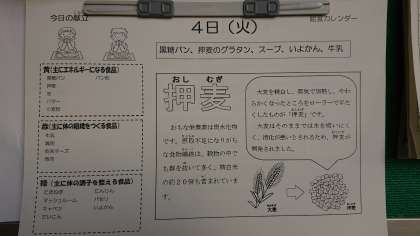 今日の献立
給食カレンダー
4日（火）
黒糖パン、押麦のグラタン、スープ、いよかん、牛乳
黄（主にエネルギーになる食品）
黒糖パン　パン粉
押麦
油
バター
小麦粉
赤（主に体の組織をつくる食品）
牛乳
鶏肉
粉チーズ
豚肉
緑（主に体の調子を整える食品）
たまねぎ　にんじん
マッシュルーム　パセリ
キャベツ　いよかん
だいこん
おし　むぎ
押麦
おもな栄養素は炭水化物
です。摂取不足になりがち
な食物繊維は、穀物の中で
も群を抜いて多く、精白米
の約20倍も含まれていま
す。
大麦を精白し、蒸気で加熱し、やわ
らかくなったところをローラーで平た
くしたものが「押麦」です。
大麦はそのままでは水を吸いにく
く、消化が悪いとされるため、押麦が
開発されました。
大麦
押麦